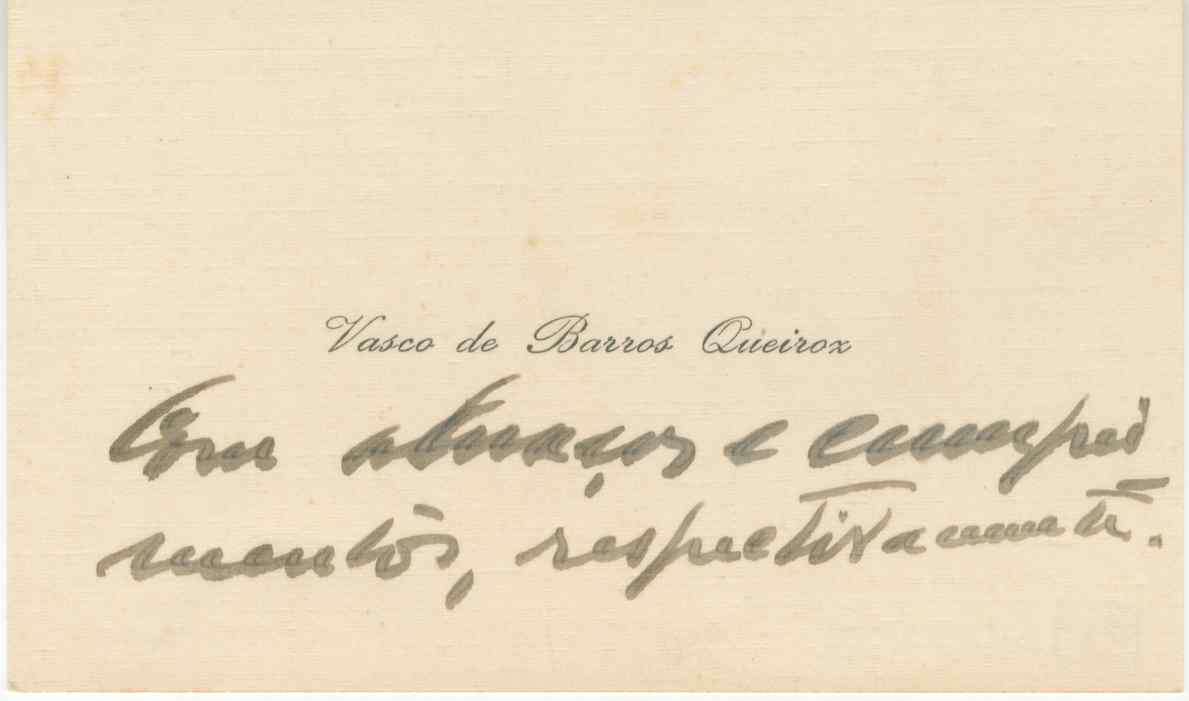 Vasco de Barros Queiroz
Com abraços e cumpri
mentos, respectivamente.